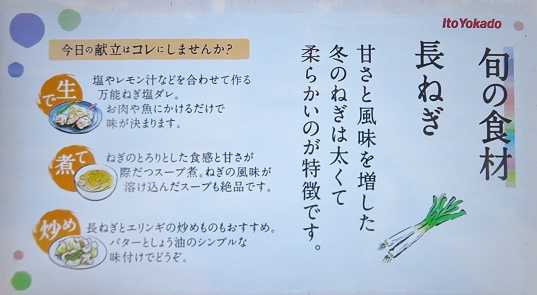 ItoYokado
旬の食材
長ねぎ
甘さと風味を増した
冬のねぎは太くて
柔らかいのが特徴です。
今日の献立はコレにしませんか?
生で
塩やレモン汁などを合わせて作る
万能ねぎ塩ダレ。
お肉や魚にかけるだけで
味が決まります。
煮て
ねぎのとろりとした食感と甘さが
際だつスープ煮。ねぎの風味が
溶け込んだスープも絶品です。
炒め
長ねぎとエリンギの炒めものもおすすめ。
バターとしょう油のシンプルな
味付けでどうぞ。